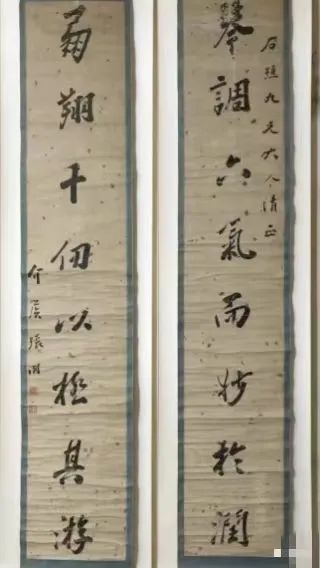 石照九兄大人清正
調六氣而妙於潤
翔千仞以極其游
介侯張澍